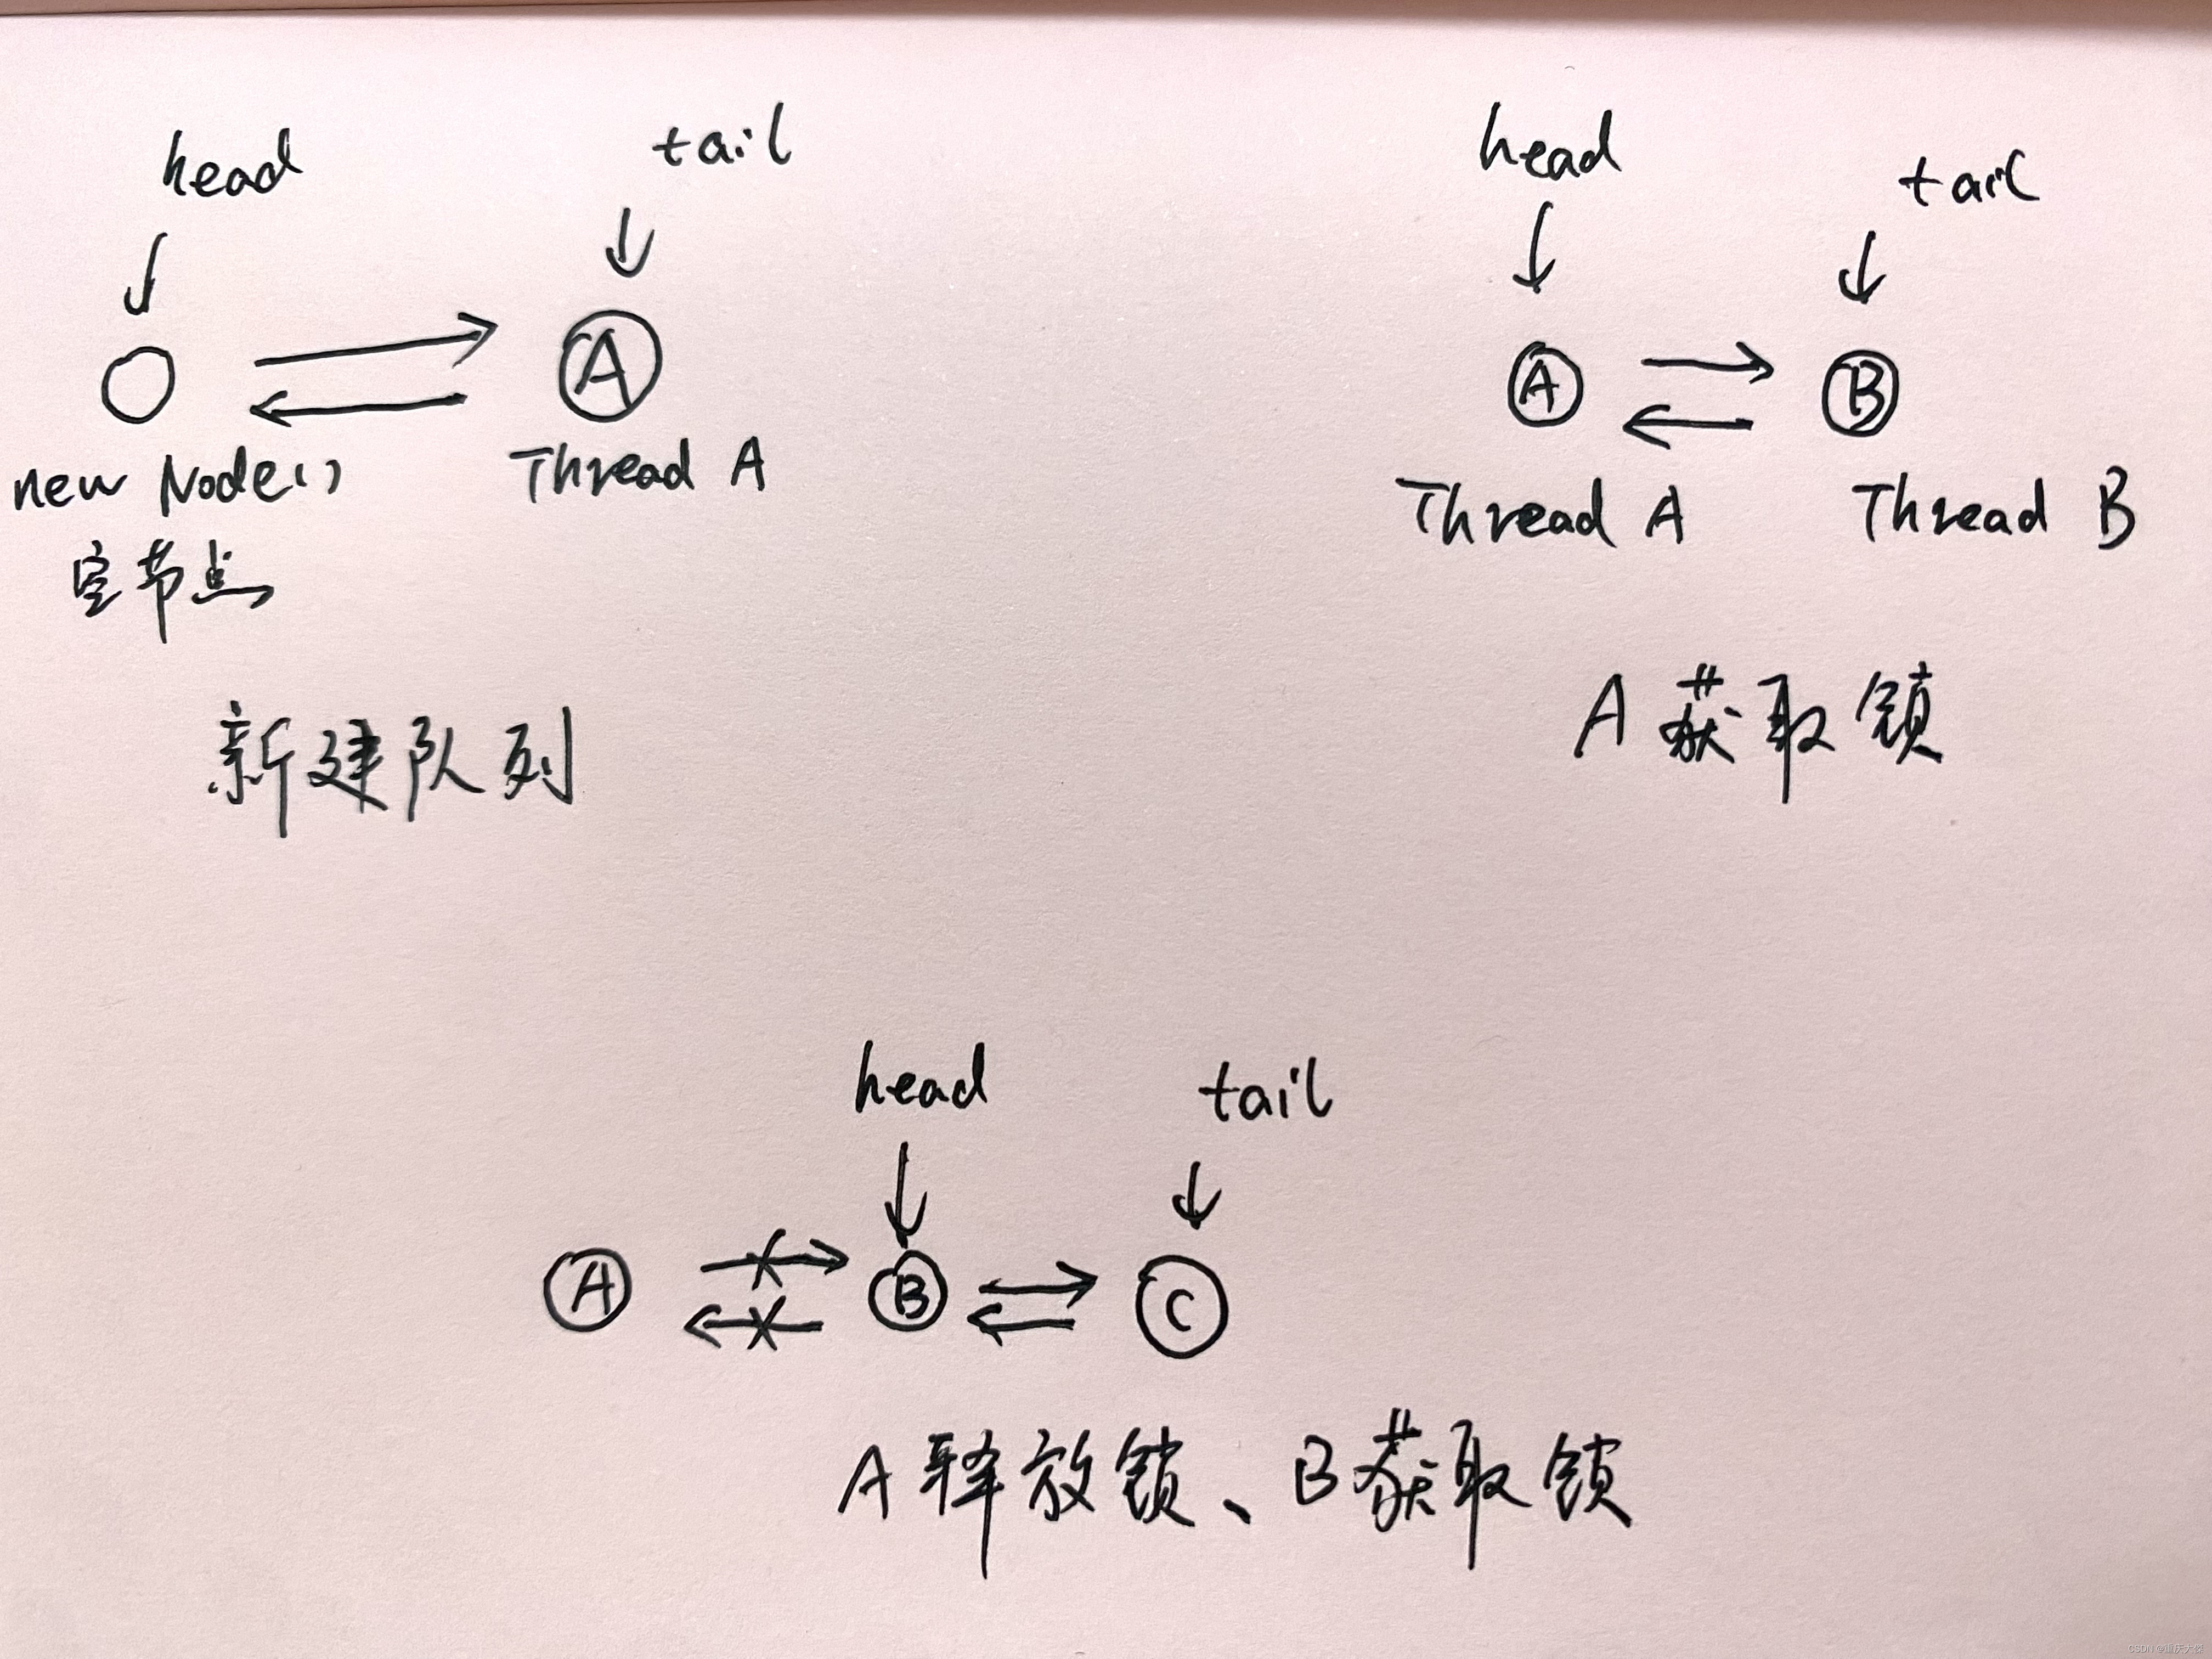 head
tail
A
new Node()
Thread A
空节点
新建队列
head
tail
A
B
Thread A
Thread B
A 获取锁
head
tail
A
B
C
A 释放锁、B获取锁